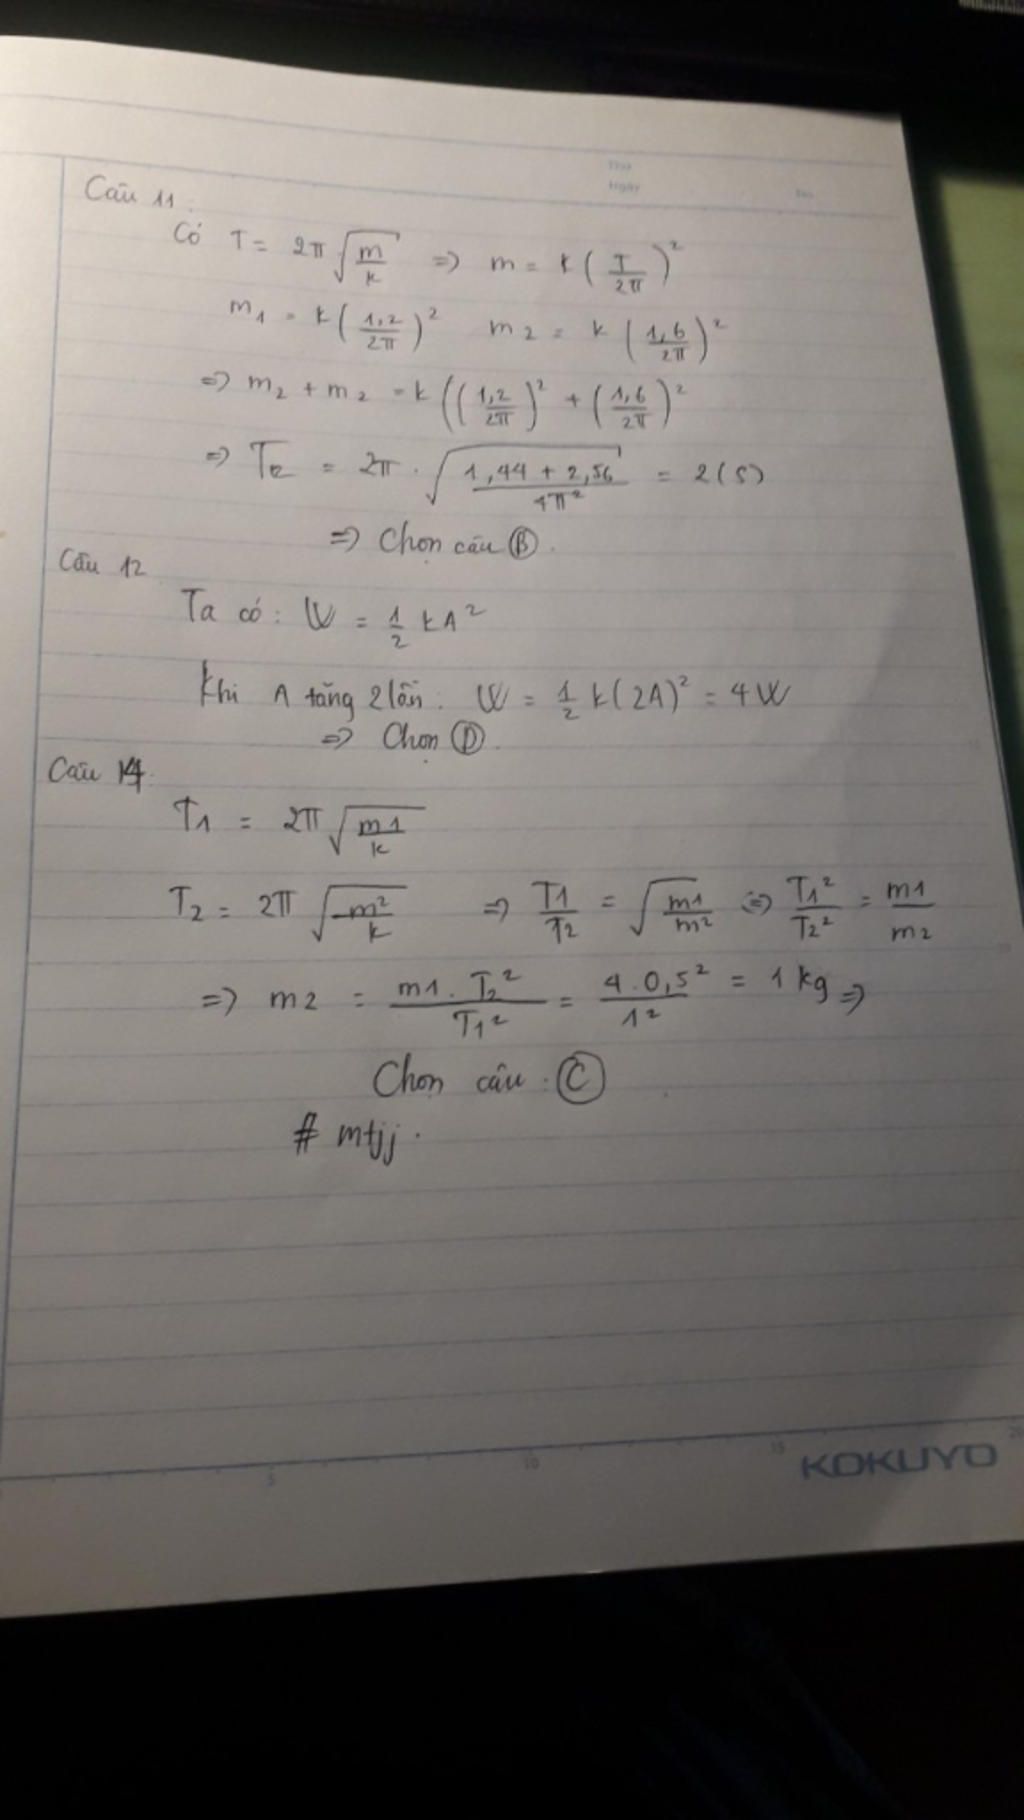 Thứ
Ngày
Câu 11:
Có T = 2π √(m/k) => m = k (T/2π)²
m1 = k (1,2/2π)² m2 = k (1,6/2π)²
=> m2 + m2 = k ((1,2/2π)² + (1,6/2π)²
=> T = 2π . √(1,44 + 2,56/4π²) = 2 (s)
=> Chọn câu B.
Câu 12
Ta có: W = 1/2 kA²
Khi A tăng 2 lần: W = 1/2 k(2A)² = 4W
=> Chọn D.
Câu 14:
T1 = 2π √(m1/k)
T2 = 2π √(m2/k) => T1/T2 = √(m1/m2) <=> T1²/T2² = m1/m2
=> m2 = m1 . T2²/T1² = 4 . 0,5²/1² = 1 kg =>
Chọn câu : C
# mtjj.
5 10 15 20
KOKUYO